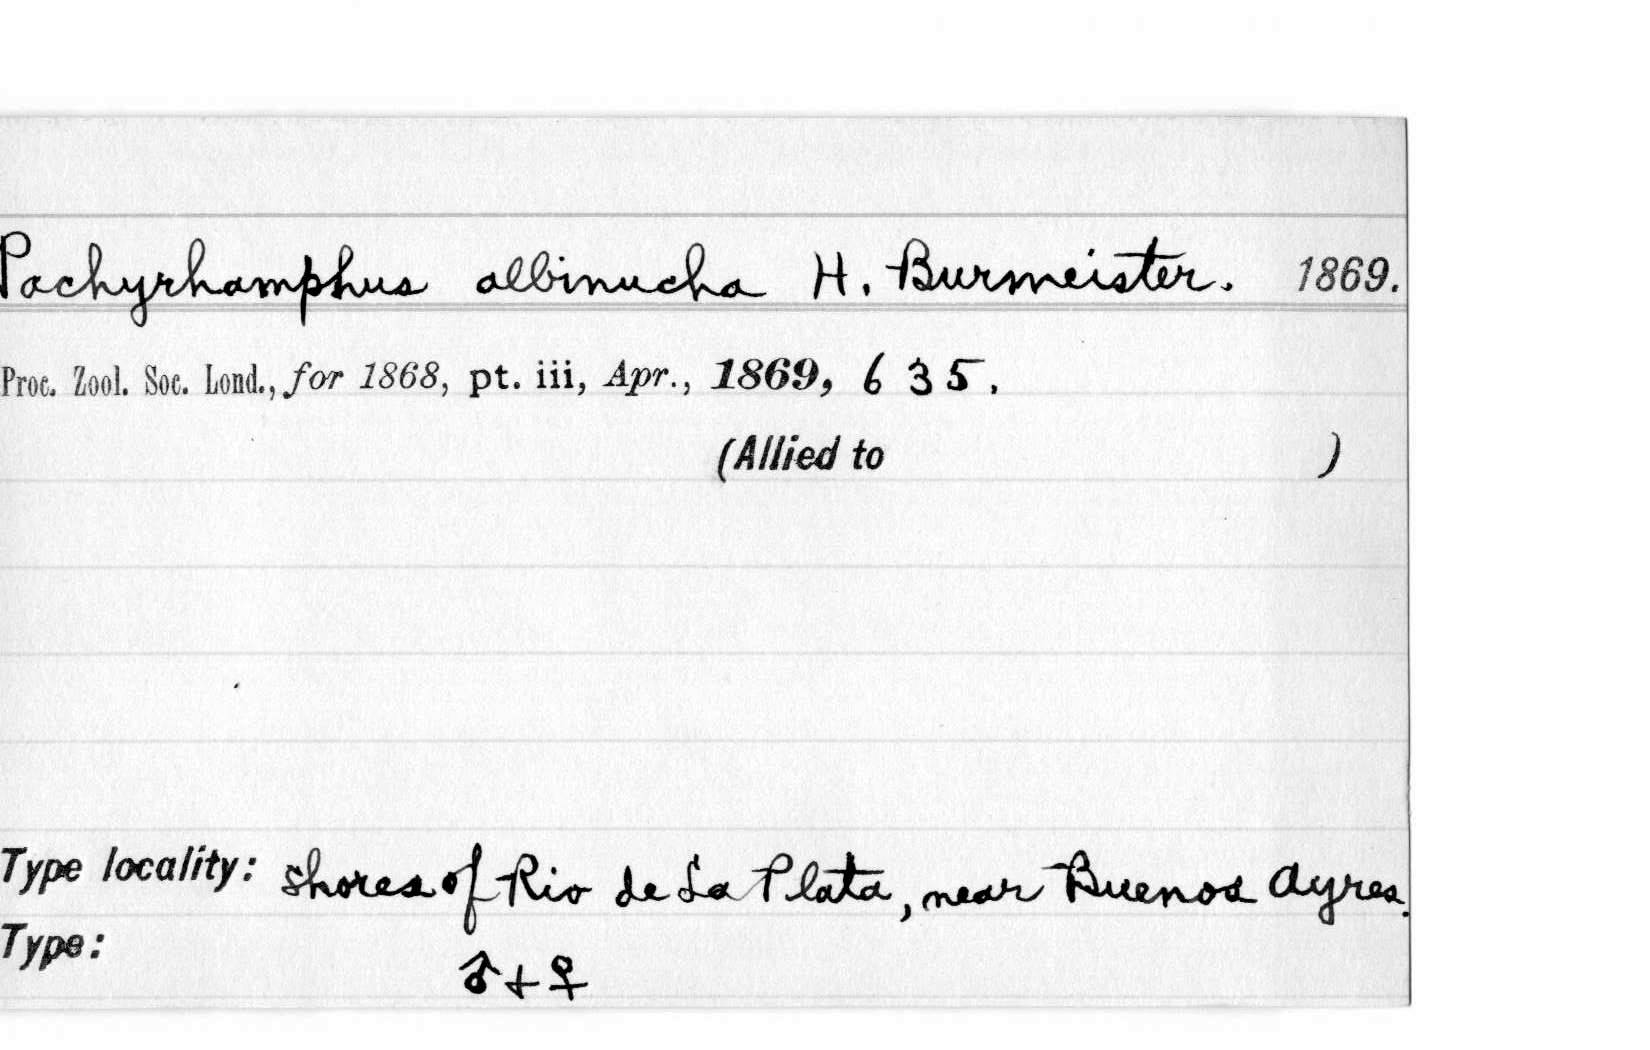 Pachyrhamphus albinucha H. Burmeister. 1869.
Proc. Zool. Soc. Lond., for 1868, pt. iii, Apr., 1869, 635.
(Allied to )
Type locality: shores of Rio de La Plata, near Buenos Ayres.
Type:
♂ + ♀